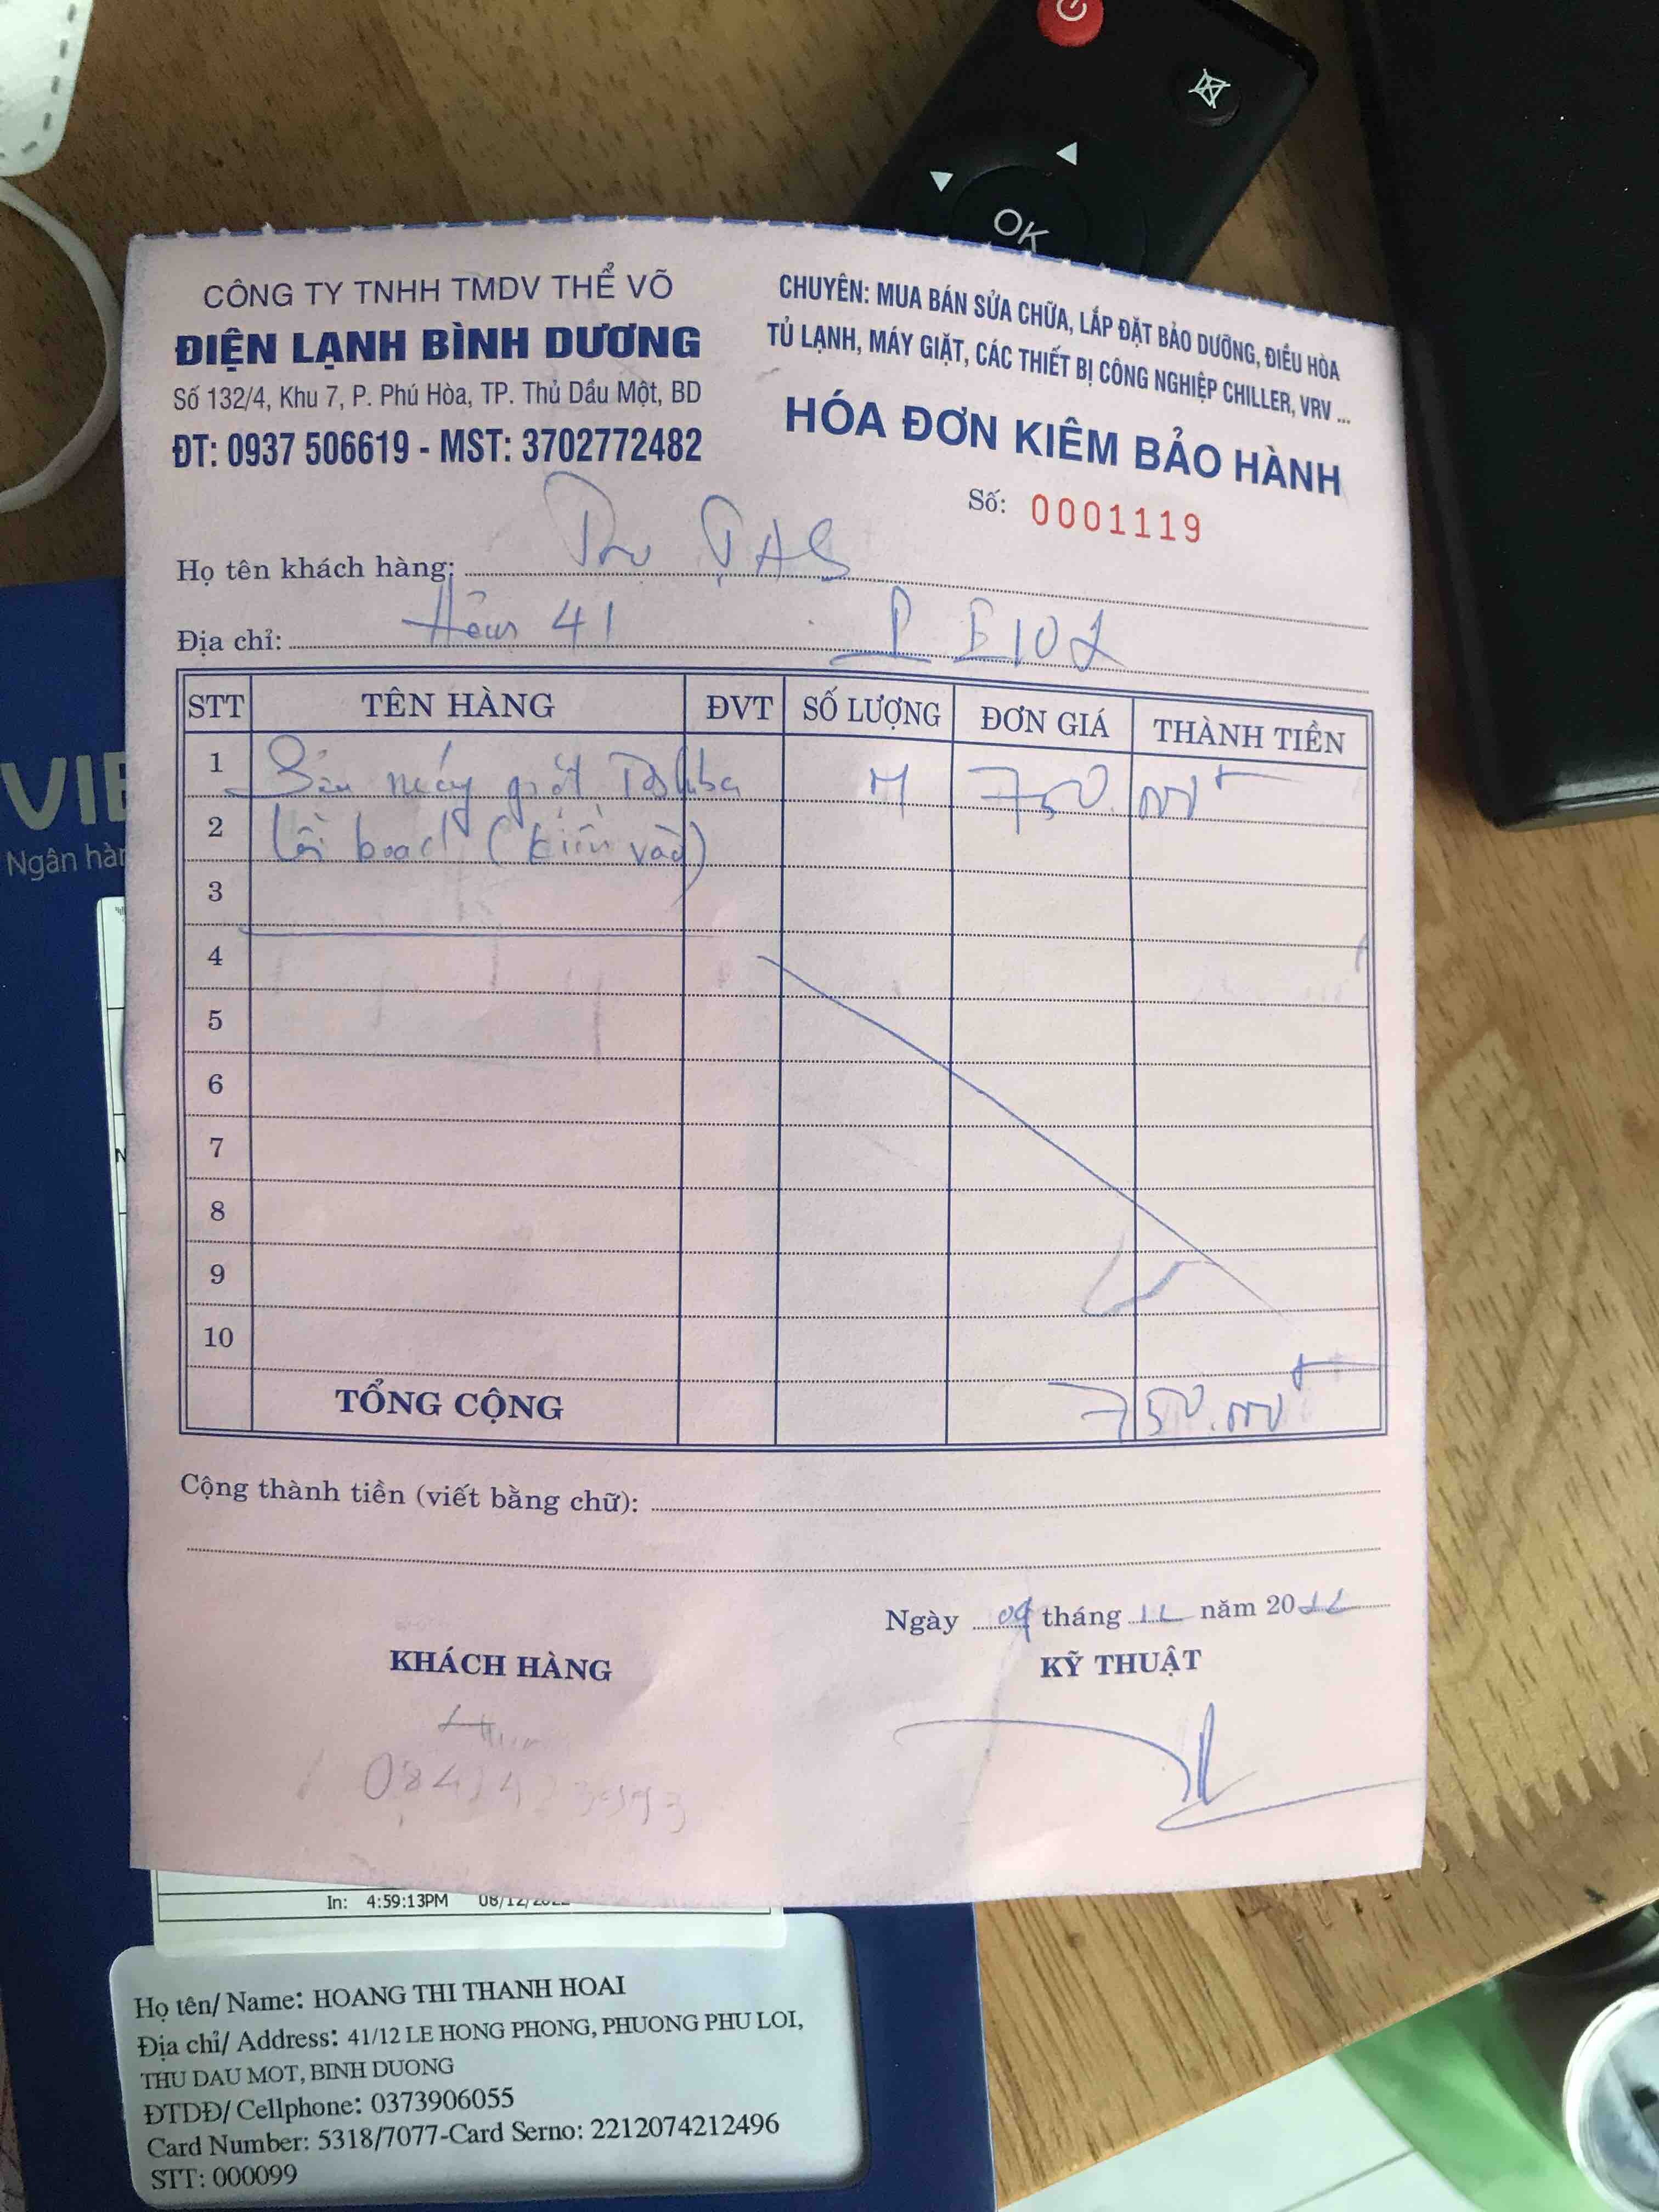 OK
CÔNG TY TNHH TMDV THỂ VÕ
ĐIỆN LẠNH BÌNH DƯƠNG
Số 132/4, Khu 7, P. Phú Hòa, TP. Thủ Dầu Một, BD
ĐT: 0937 506619 - MST: 3702772482
CHUYÊN: MUA BÁN SỬA CHỮA, LẮP ĐẶT BẢO DƯỠNG, ĐIỀU HÒA
TỦ LẠNH, MÁY GIẶT, CÁC THIẾT BỊ CÔNG NGHIỆP CHILLER, VRV ...
HÓA ĐƠN KIÊM BẢO HÀNH
Số: 0001119
Họ tên khách hàng:
Địa chỉ: 41 P E102
STT TÊN HÀNG ĐVT SỐ LƯỢNG ĐƠN GIÁ THÀNH TIỀN
1 máy giặt Toshiba 750.000đ
2 lỗi board
3
4
5
6
7
8
9
10
TỔNG CỘNG 750.000đ
Cộng thành tiền (viết bằng chữ):
Ngày 09 tháng 12 năm 2022
KHÁCH HÀNG KỸ THUẬT
VIE
Ngân hàn
In: 4:59:13PM
Họ tên/ Name: HOANG THI THANH HOAI
Địa chỉ/ Address: 41/12 LE HONG PHONG, PHUONG PHU LOI,
THU DAU MOT, BINH DUONG
ĐTDĐ/ Cellphone: 0373906055
Card Number: 5318/7077-Card Serno: 2212074212496
STT: 000099